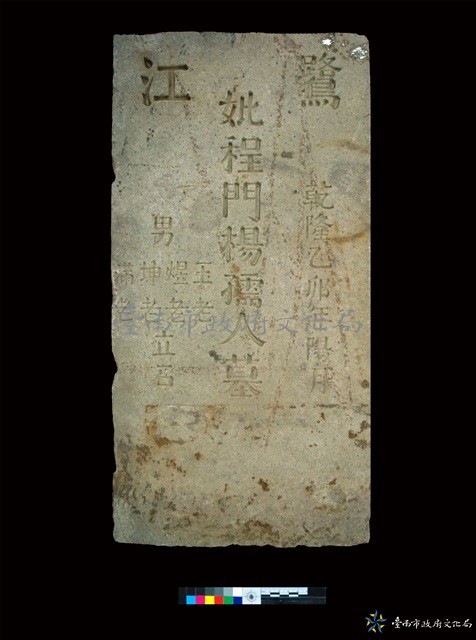 鷺江
乾隆乙卯年陽月
妣程門楊孺人墓
男
煜老
坤老
立石
臺南市政府文化局
臺南市政府文化局